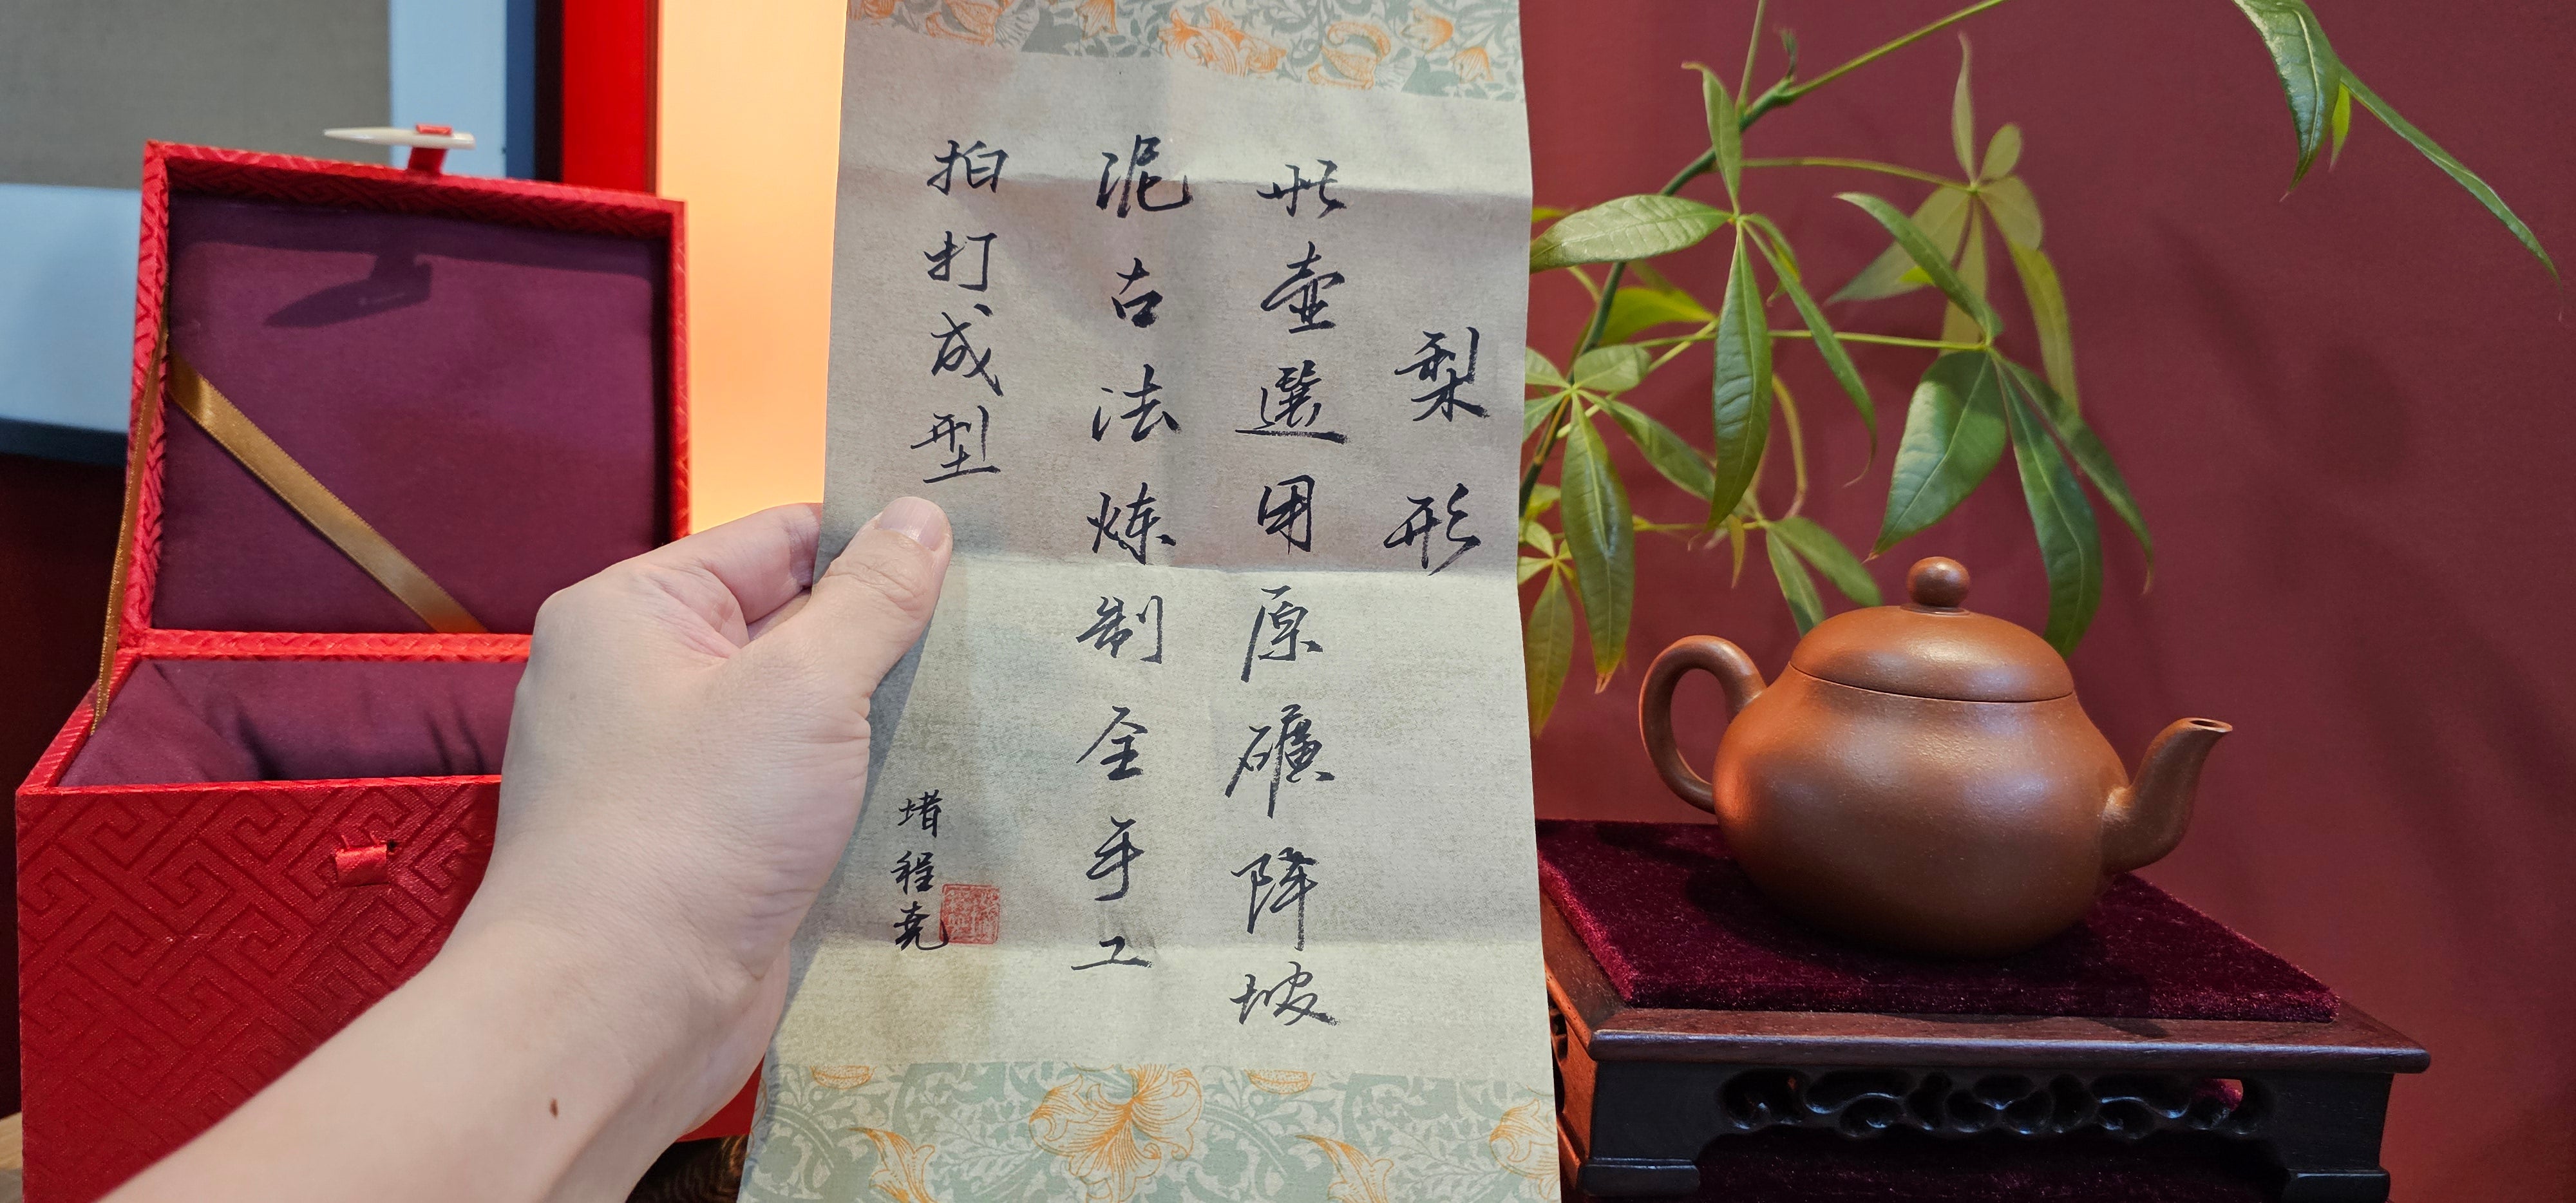 梨形
此壶選用原礦降坡
泥古法炼制全手工
拍打成型
堵程尭